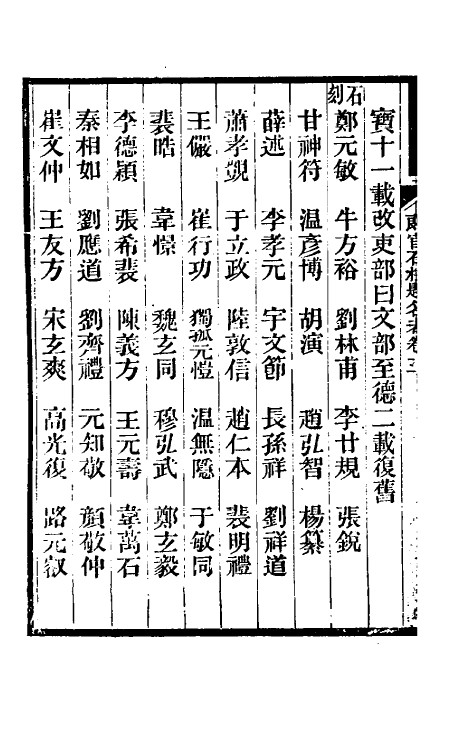 寶十一載改吏部曰文部至德二載復舊
石刻
鄭元敏 牛方裕 劉林甫 李廿規 張銳
甘神符 温彥博 胡演 趙弘智 楊纂
薛述 李孝元 宇文節 長孫祥 劉祥道
蕭孝覬 于立政 陸敦信 趙仁本 裴明禮
王儼 崔行功 獨孤元愷 温無隱 于敏同
裴皓 韋憬 魏玄同 穆弘武 鄭玄毅
李德穎 張希裴 陳義方 王元壽 韋萬石
秦相如 劉應道 劉齊禮 元知敬 顏敬仲
崔文仲 王友方 宋玄爽 高光復 路元叡